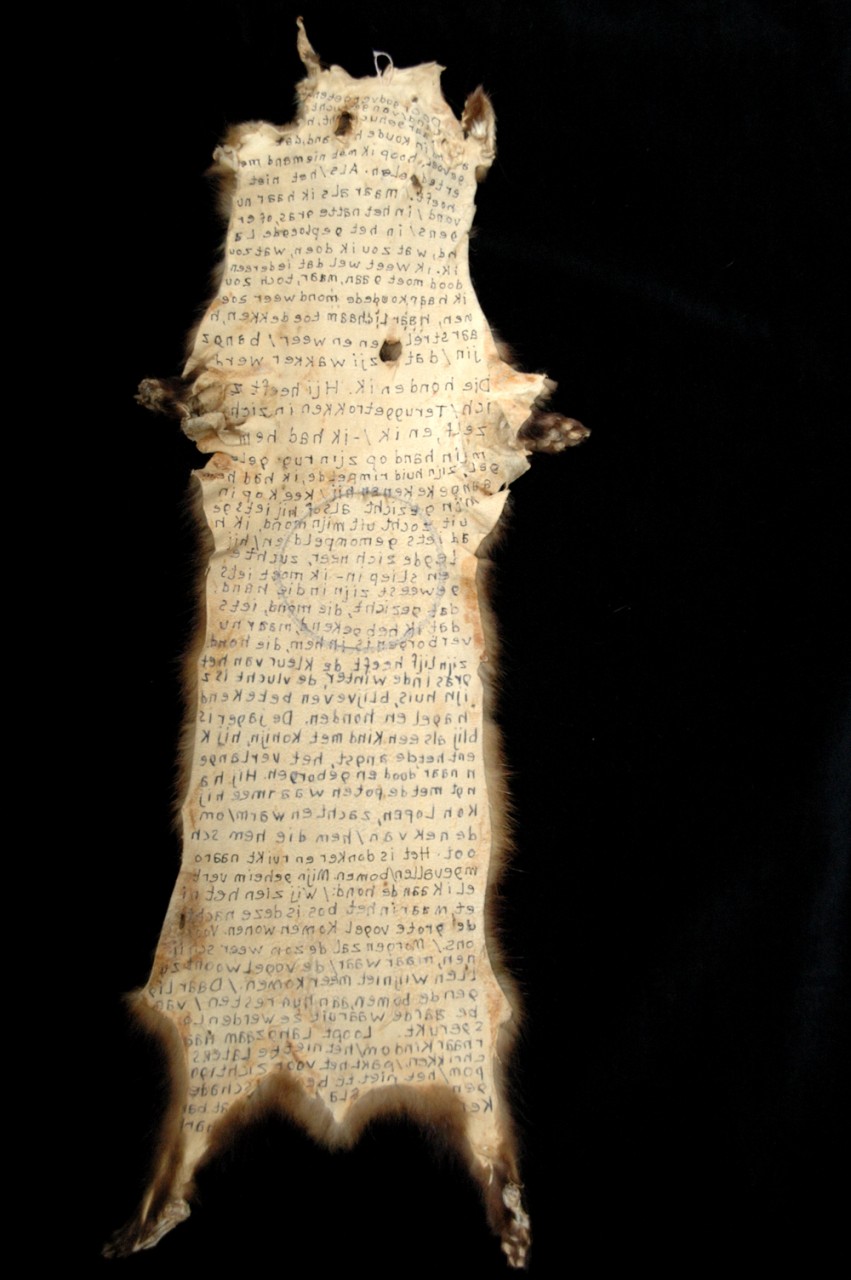 hoop ik met niemand
Als/het niet
hoeft/maar als ik haar nu
vond/in het natte gras, of er
gens/in het geploegde La
nd, wat zou ik doen, wat zou
ik. ik weet wel dat iedereen
dood moet gaan, maar, toch zou
ik haar koude mond weer zoe
nen, haar Lichaam toedekken, h
aar strelen en weer/bang z
ijn/dat zij wakker werd
Die hond en ik. Hij heeft z
ich/Teruggetrokken in zich
zelf, en ik/-ik had hem
mijn hand op zijn rug gele
gd, zijn huid rimpelde, ik had hem
aangekeken en hij/keek op in
mijn gezicht alsof hij iets ge
uit zocht uit mijn mond, ik h
ad iets gemompeld en/hij
Legde zich neer, zuchte
en sliep in - ik moet iets
geweest zijn in die hand,
dat gezicht, die mond, iets
dat ik heb gekend, maar nu
verborgen is in hem, die hond.
zijn lijf heeft de kleur van het
gras in de winter, de vlucht is z
ijn huis, blijven betekend
hagel en honden. De jager is
blij als een kind met konijn, hij k
ent heete angst, het verlange
n naar dood en geborgen. Hij ha
ngt met de poten waarmee hij
kon Lopen, zacht en warm/om
de nek van/hem die hem sch
oot. Het is donker en ruikt naar o
mgevallen/bomen. Mijn geheim vert
el ik aan de hond:/wij zien het ni
et, maar in het bos is deze nacht
de grote vogel komen wonen. Voor
ons./Morgen zal de zon weer schij
nen, maar waar/de vogel woont zu
LLen wij niet meer komen./Daar lig
gen de bomen, aan hun resten/van
de aarde waaruit ze werden lo
sgerukt. Loopt Langzaam naa
r haar kind om/het niet te Laten s
chrikken/pakt het voorzichtig